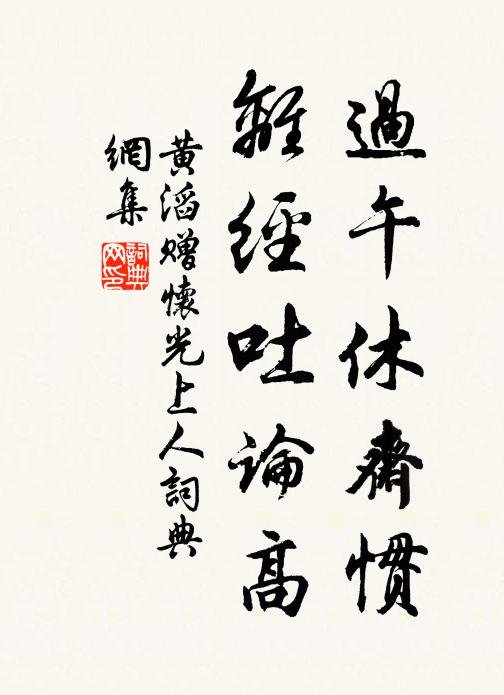 過午休齋慣
離經吐論高
黄滔贈懷光上人詞典
網集
詞典
网印